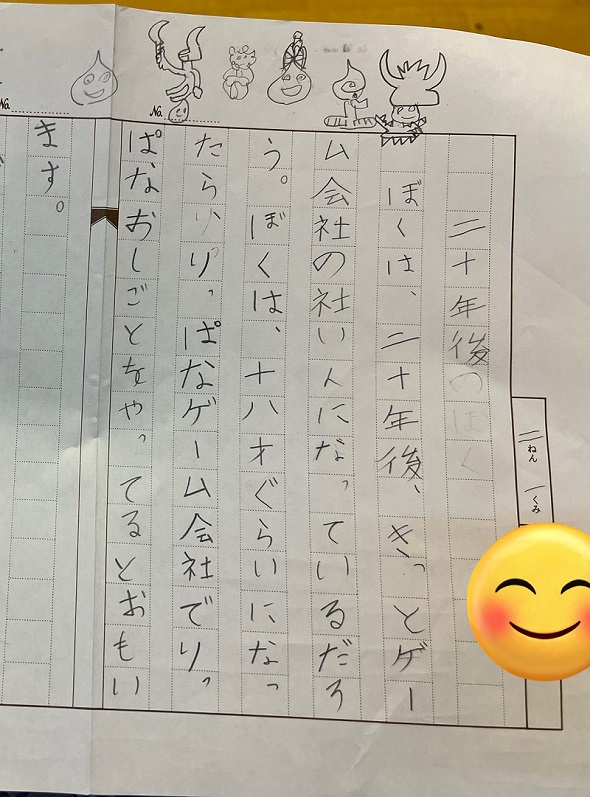 No.
No.
二ねん 一くみ
二十年後のぼく
ぼくは、二十年後、きっとゲー
ム会社の社いんになっているだろ
う。ぼくは、十八才ぐらいになっ
たらりっぱなゲーム会社でりっ
ぱなおしごとをやってるとおもい
ます。